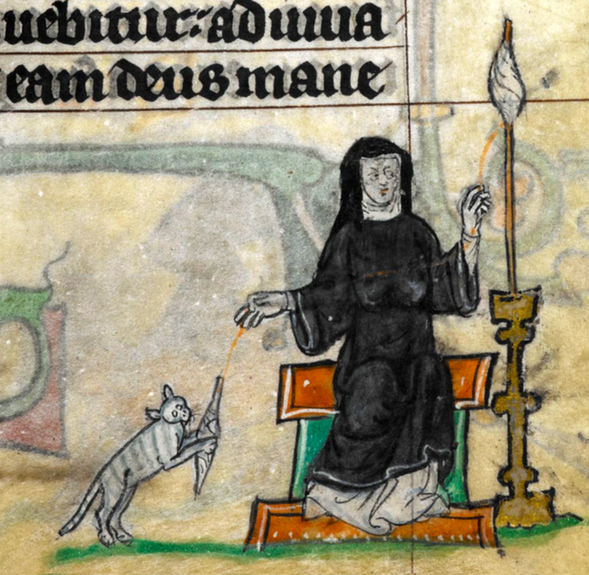 uebitur: adiuua
eam deus mane